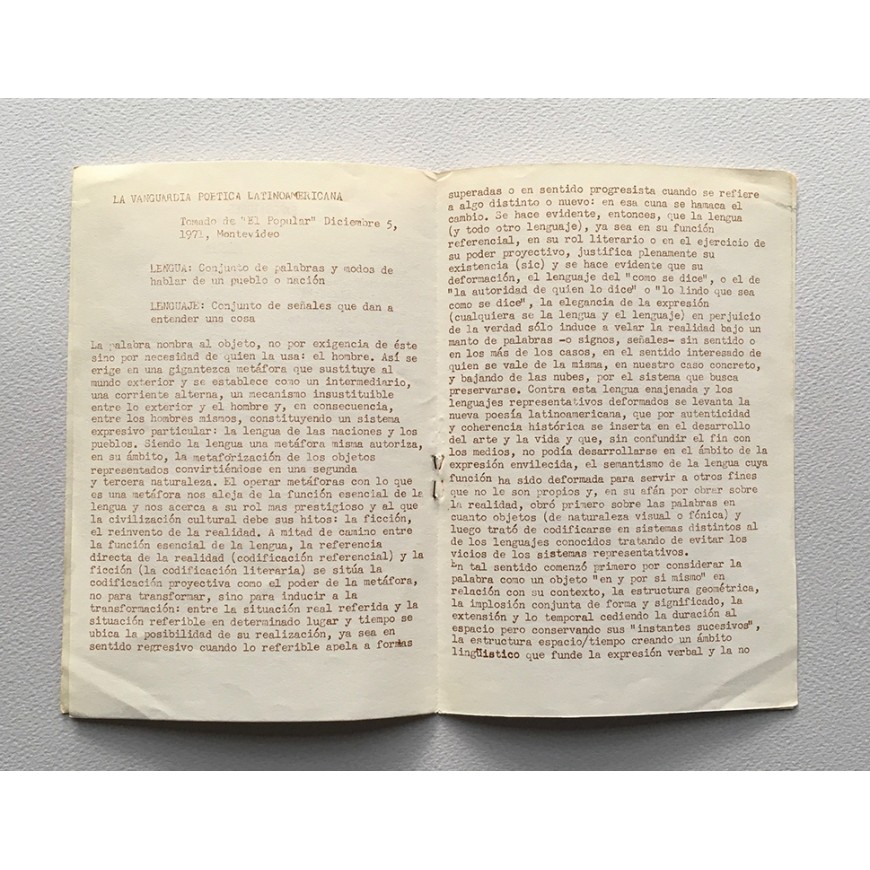 LA VANGUARDIA POETICA LATINOAMERICANA
Tomado de "El Popular" Diciembre 5,
1971, Montevideo
LENGUA: Conjunto de palabras y modos de
hablar de un pueblo o nación
LENGUAJE: Conjunto de señales que dan a
entender una cosa
La palabra nombra al objeto, no por exigencia de éste
sino por necesidad de quien la usa: el hombre. Así se
erige en una gigantezca metáfora que sustituye al
mundo exterior y se establece como un intermediario,
una corriente alterna, un mecanismo insustituible
entre lo exterior y el hombre y, en consecuencia,
entre los hombres mismos, constituyendo un sistema
expresivo particular: la lengua de las naciones y los
pueblos. Siendo la lengua una metáfora misma autoriza,
en su ámbito, la metaforización de los objetos
representados convirtiéndose en una segunda
y tercera naturaleza. El operar metáforas con lo que
es una metáfora nos aleja de la función esencial de la
lengua y nos acerca a su rol mas prestigioso y al que
la civilización cultural debe sus hitos: la ficción,
el reinvento de la realidad. A mitad de camino entre
la función esencial de la lengua, la referencia
directa de la realidad (codificación referencial) y la
ficción (la codificación literaria) se sitúa la
codificación proyectiva como el poder de la metáfora,
no para transformar, sino para inducir a la
transformación: entre la situación real referida y la
situación referible en determinado lugar y tiempo se
ubica la posibilidad de su realización, ya sea en
sentido regresivo cuando lo referible apela a formas
superadas o en sentido progresista cuando se refiere
a algo distinto o nuevo: en esa cuna se hamaca el
cambio. Se hace evidente, entonces, que la lengua
(y todo otro lenguaje), ya sea en su función
referencial, en su rol literario o en el ejercicio de
su poder proyectivo, justifica plenamente su
existencia (sic) y se hace evidente que su
deformación, el lenguaje del "como se dice", o el de
"la autoridad de quien lo dice" o "lo lindo que sea
como se dice", la elegancia de la expresión
(cualquiera se la lengua y el lenguaje) en perjuicio
de la verdad sólo induce a velar la realidad bajo un
manto de palabras -o signos, señales- sin sentido o
en los más de los casos, en el sentido interesado de
quien se vale de la misma, en nuestro caso concreto,
y bajando de las nubes, por el sistema que busca
preservarse. Contra esta lengua enajenada y los
lenguajes representativos deformados se levanta la
nueva poesía latinoamericana, que por autenticidad
y coherencia histórica se inserta en el desarrollo
del arte y la vida y que, sin confundir el fin con
los medios, no podía desarrollarse en el ámbito de la
expresión envilecida, el semantismo de la lengua cuya
función ha sido deformada para servir a otros fines
que no le son propios y, en su afán por obrar sobre
la realidad, obró primero sobre las palabras en
cuanto objetos (de naturaleza visual o fónica) y
luego trató de codificarse en sistemas distintos al
de los lenguajes conocidos tratando de evitar los
vicios de los sistemas representativos.
En tal sentido comenzó primero por considerar la
palabra como un objeto "en y por si mismo" en
relación con su contexto, la estructura geométrica,
la implosión conjunta de forma y significado, la
extensión y lo temporal cediendo la duración al
espacio pero conservando sus "instantes sucesivos",
la estructura espacio/tiempo creando un ámbito
lingüístico que funde la expresión verbal y la no